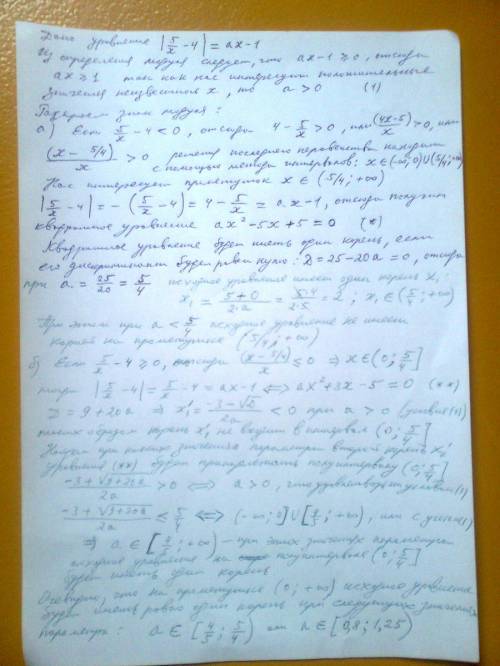 Дано уравнение |5/x - 4| = ax - 1
Из определения модуля следует, что ax - 1 ≥ 0, отсюда
ax ≥ 1 так как нас интересуют положительные
значения неизвестной x, то a > 0 (1)
знак модуля:
а) Если 5/x - 4 < 0, отсюда 4 - 5/x > 0, или (4x-5)/x > 0, или
(x - 5/4)/x > 0 решение последнего неравенства находим
с помощью метода интервалов: x ∈ (-∞; 0) ∪ (5/4; +∞)
Нас интересует промежуток x ∈ (5/4; +∞)
|5/x - 4| = -(5/x - 4) = 4 - 5/x = ax - 1, отсюда получим
квадратное уравнение ax² - 5x + 5 = 0 (*)
Квадратное уравнение будет иметь один корень, если
его дискриминант будет равен нулю: D = 25 - 20a = 0, отсюда
при a = 25/20 = 5/4 исходное уравнение имеет один корень x₁:
x₁ = (5+0)/(2·a) = (5·4)/(2·5) = 2; x₁ ∈ (5/4; +∞)
При этом при a < 5/4 исходное уравнение не имеет
корней на промежутке (5/4; +∞)
б) Если 5/x - 4 ≥ 0, отсюда (x - 5/4)/x ≤ 0 ⇒ x ∈ (0; 5/4]
тогда |5/x - 4| = 5/x - 4 = ax - 1 ⟺ ax² + 3x - 5 = 0 (**)
D = 9 + 20a ⇒ x₁' = (-3 - √D)/2a < 0 при a > 0 (условие (1))
таким образом корень x₁' не входит в интервал (0; 5/4]
Найдём при каких значениях параметра второй корень x₂'
уравнения (**) будет принадлежать полуинтервалу (0; 5/4]
(-3 + √(9+20a))/2a > 0 ⟺ a > 0, что удовлетворяет условию (1)
(-3 + √(9+20a))/2a ≤ 5/4 ⟺ (-∞; 0] ∪ [4/5; +∞), или с учётом (1)
⇒ a ∈ [4/5; +∞) - при этих значениях параметра
исходное уравнение на полуинтервале (0; 5/4]
будет иметь один корень
Очевидно, что на промежутке (0; +∞) исходное уравнение
будет иметь ровно один корень при следующих значениях
параметра: a ∈ [4/5; 5/4) или a ∈ [0,8; 1,25)